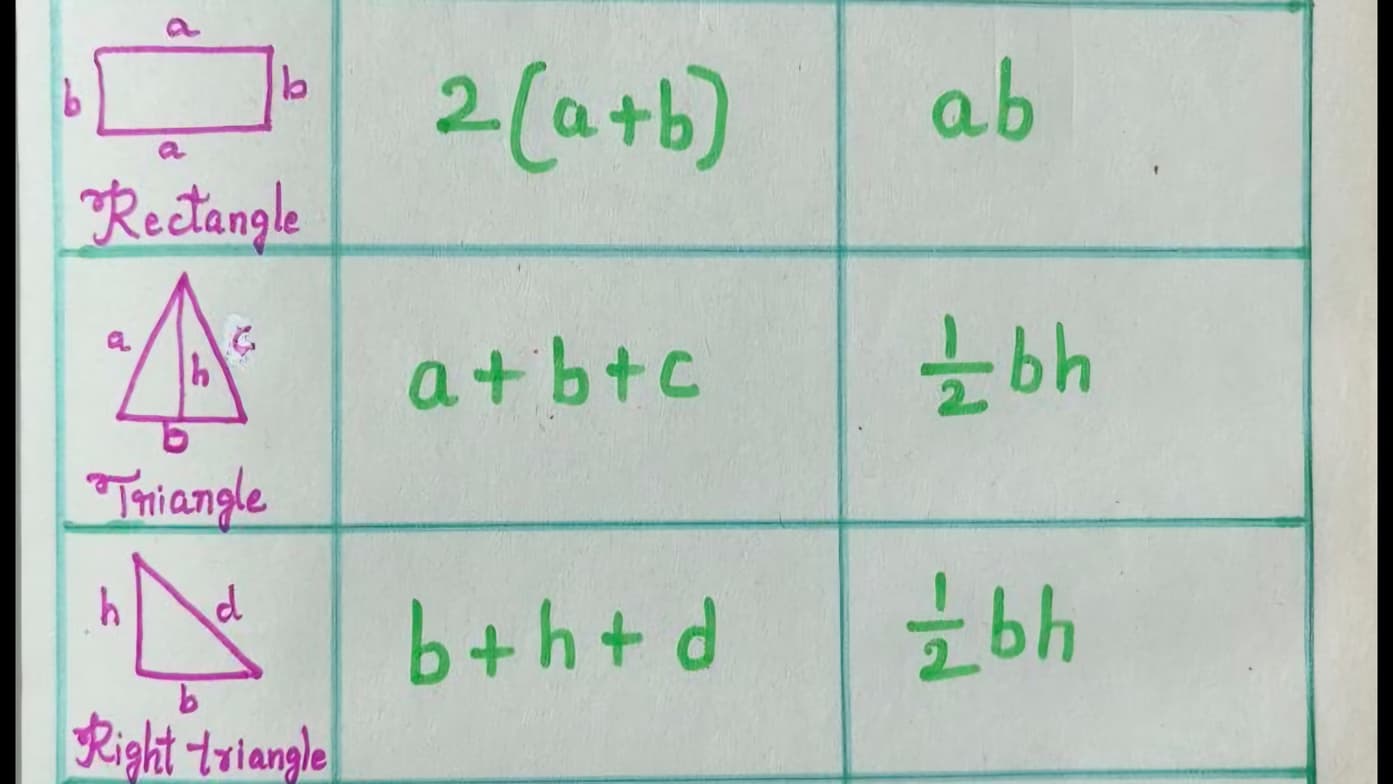 a
b b
a
Rectangle
2(a+b)
ab
a c
h
b
Triangle
a+b+c
1/2 bh
h d
b
Right triangle
b+h+d
1/2 bh